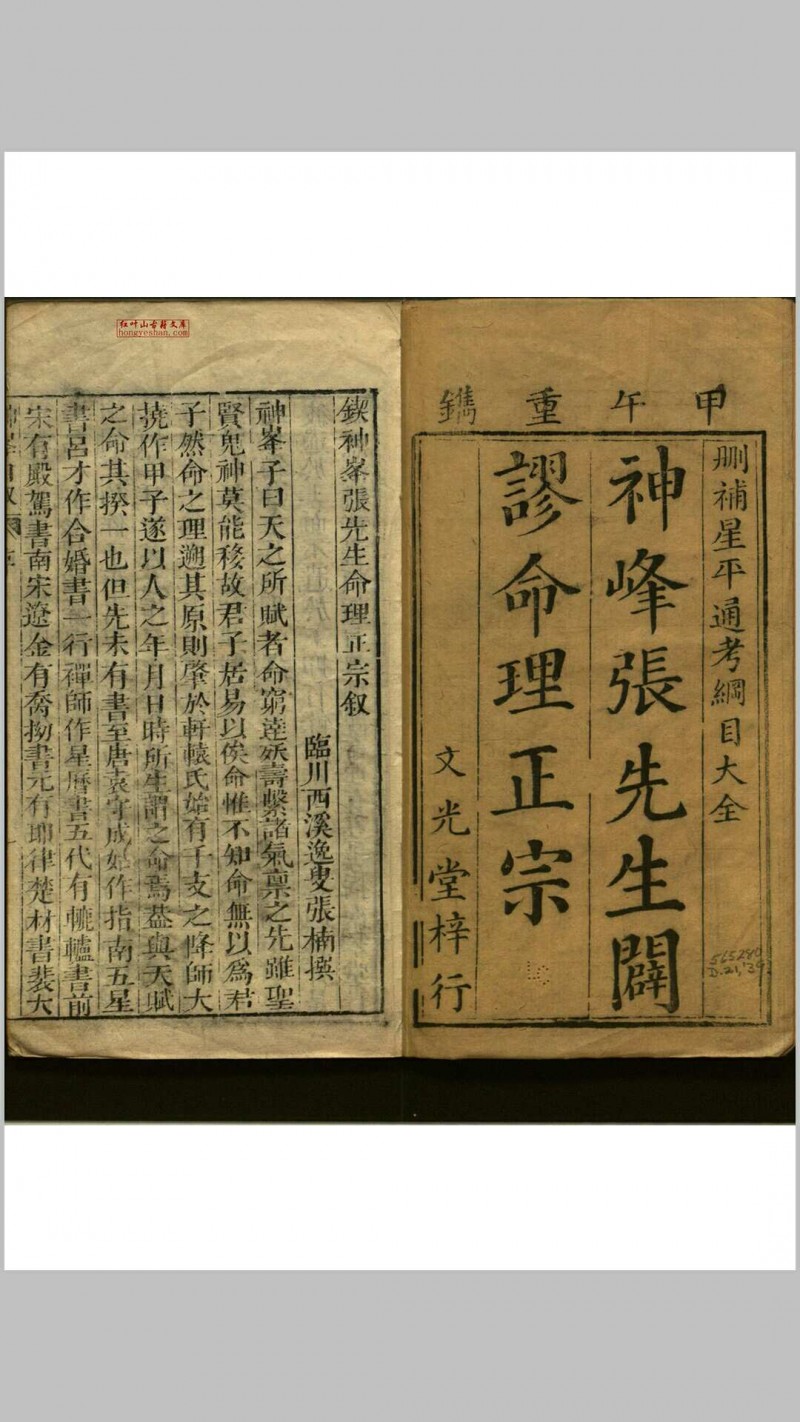 甲午重鐫
刪補星平通考綱目大全
神峰張先生闢
謬命理正宗
文光堂梓行
565280
D.21,'39
红叶山古籍文库
hongyeshan.com
鍥神峯張先生命理正宗叙
臨川西溪逸叟張楠撰
神峯子曰天之所賦者命窮達殀壽繫諸氣稟之先雖聖
賢鬼神莫能移故君子居易以俟命惟不知命無以爲君
子然命之理遡其原則肇於軒轅氏始有干支之降師大
撓作甲子遂以人之年月日時所生謂之命焉葢與天賦
之命其揆一也但先未有書至唐袁守成始作指南五星
書呂才作合婚書一行禪師作星曆書五代有轆轤書前
宋有殿駕書南宋遼金有喬拗書元有耶律楚材書裴大